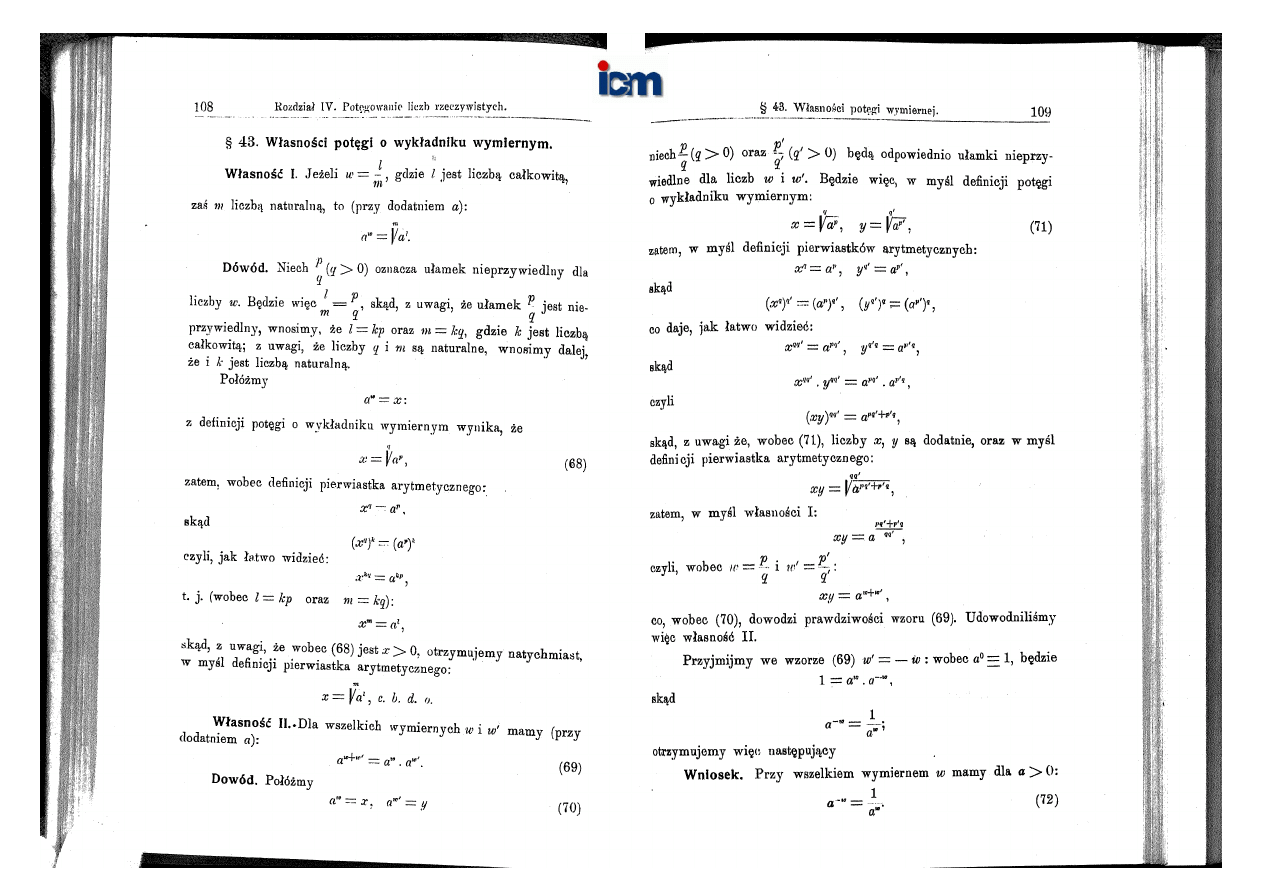 icm
108 Rozdział IV. Potęgowanie liczb rzeczywistych.
§ 43. Własności potęgi o wykładniku wymiernym.
Własność I. Jeżeli w = l/m, gdzie l jest liczbą całkowitą,
zaś m liczbą naturalną, to (przy dodatniem a):
aʷ = ᵐ√aˡ.
Dówód. Niech p/q (q > 0) oznacza ułamek nieprzywiedlny dla
liczby w. Będzie więc l/m = p/q, skąd, z uwagi, że ułamek p/q jest nie-
przywiedlny, wnosimy, że l = kp oraz m = kq, gdzie k jest liczbą
całkowitą; z uwagi, że liczby q i m są naturalne, wnosimy dalej,
że i k jest liczbą naturalną.
Połóżmy
a^w = x:
z definicji potęgi o wykładniku wymiernym wynika, że
x = ^q√a^p, (68)
zatem, wobec definicji pierwiastka arytmetycznego:
x^q = a^p,
skąd
(x^q)^k = (a^p)^k
czyli, jak łatwo widzieć:
x^kq = a^kp,
t. j. (wobec l = kp oraz m = kq):
x^m = a^l,
skąd, z uwagi, że wobec (68) jest x > 0, otrzymujemy natychmiast,
w myśl definicji pierwiastka arytmetycznego:
x = ^m√a^l, c. b. d. o.
Własność II. Dla wszelkich wymiernych w i w' mamy (przy
dodatniem a):
a^{w+w'} = a^w . a^{w'}. (69)
Dowód. Połóżmy
a^w = x, a^{w'} = y (70)
§ 43. Własności potęgi wymiernej. 109
niech p/q (q > 0) oraz p'/q' (q' > 0) będą odpowiednio ułamki nieprzy-
wiedlne dla liczb w i w'. Będzie więc, w myśl definicji potęgi
o wykładniku wymiernym:
x = ^q√a^p, y = ^{q'}√a^{p'}, (71)
zatem, w myśl definicji pierwiastków arytmetycznych:
x^q = a^p, y^{q'} = a^{p'},
skąd
(x^q)^{q'} = (a^p)^{q'}, (y^{q'})^q = (a^{p'})^q,
co daje, jak łatwo widzieć:
x^{qq'} = a^{pq'}, y^{q'q} = a^{p'q},
skąd
x^{qq'} . y^{qq'} = a^{pq'} . a^{p'q},
czyli
(xy)^{qq'} = a^{pq'+p'q},
skąd, z uwagi że, wobec (71), liczby x, y są dodatnie, oraz w myśl
definicji pierwiastka arytmetycznego:
xy = ^{qq'}√a^{pq'+p'q},
zatem, w myśl własności I:
xy = a^{(pq'+p'q)/qq'},
czyli, wobec w = p/q i w' = p'/q':
xy = a^{w+w'},
co, wobec (70), dowodzi prawdziwości wzoru (69). Udowodniliśmy
więc własność II.
Przyjmijmy we wzorze (69) w' = — w : wobec a^0 ≡ 1, będzie
1 = a^w . a^{-w},
skąd
a^{-w} = 1/a^w;
otrzymujemy więc następujący
Wniosek. Przy wszelkiem wymiernem w mamy dla a > 0:
a^{-w} = 1/a^w. (72)